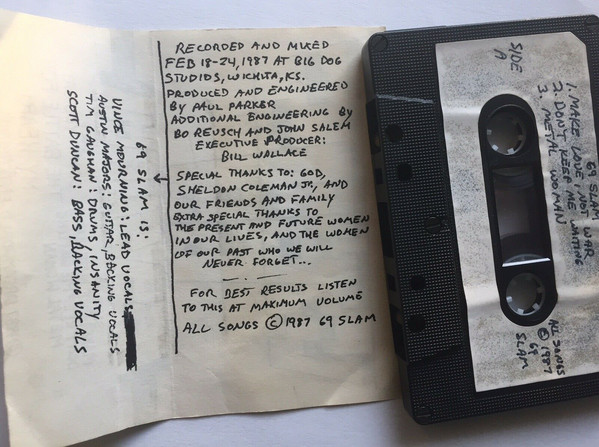 69 SLAM IS:
VINCE MOURNING: LEAD VOCALS
AUSTIN MAJORS: GUITAR, BACKING VOCALS
TIM GAUSMAN: DRUMS, INSANITY
SCOTT DUNCAN: BASS, BACKING VOCALS
RECORDED AND MIXED
FEB 18-24, 1987 AT BIG DOG
STUDIOS, WICHITA, KS.
PRODUCED AND ENGINEERED
BY PAUL PARKER
ADDITIONAL ENGINEERING BY
BO REUSCH AND JOHN SALEM
EXECUTIVE PRODUCER:
BILL WALLACE
SPECIAL THANKS TO: GOD,
SHELDON COLEMAN JR., AND
OUR FRIENDS AND FAMILY
EXTRA SPECIAL THANKS TO
THE PRESENT AND FUTURE WOMEN
IN OUR LIVES, AND THE WOMEN
OF OUR PAST WHO WE WILL
NEVER FORGET...
FOR BEST RESULTS LISTEN
TO THIS AT MAXIMUM VOLUME
ALL SONGS © 1987 69 SLAM
SIDE
A
69 SLAM
1. MAKE LOVE, NOT WAR
2. DON'T KEEP ME WAITING
3. METAL WOMAN
ALL SONGS
© 1987
69
SLAM